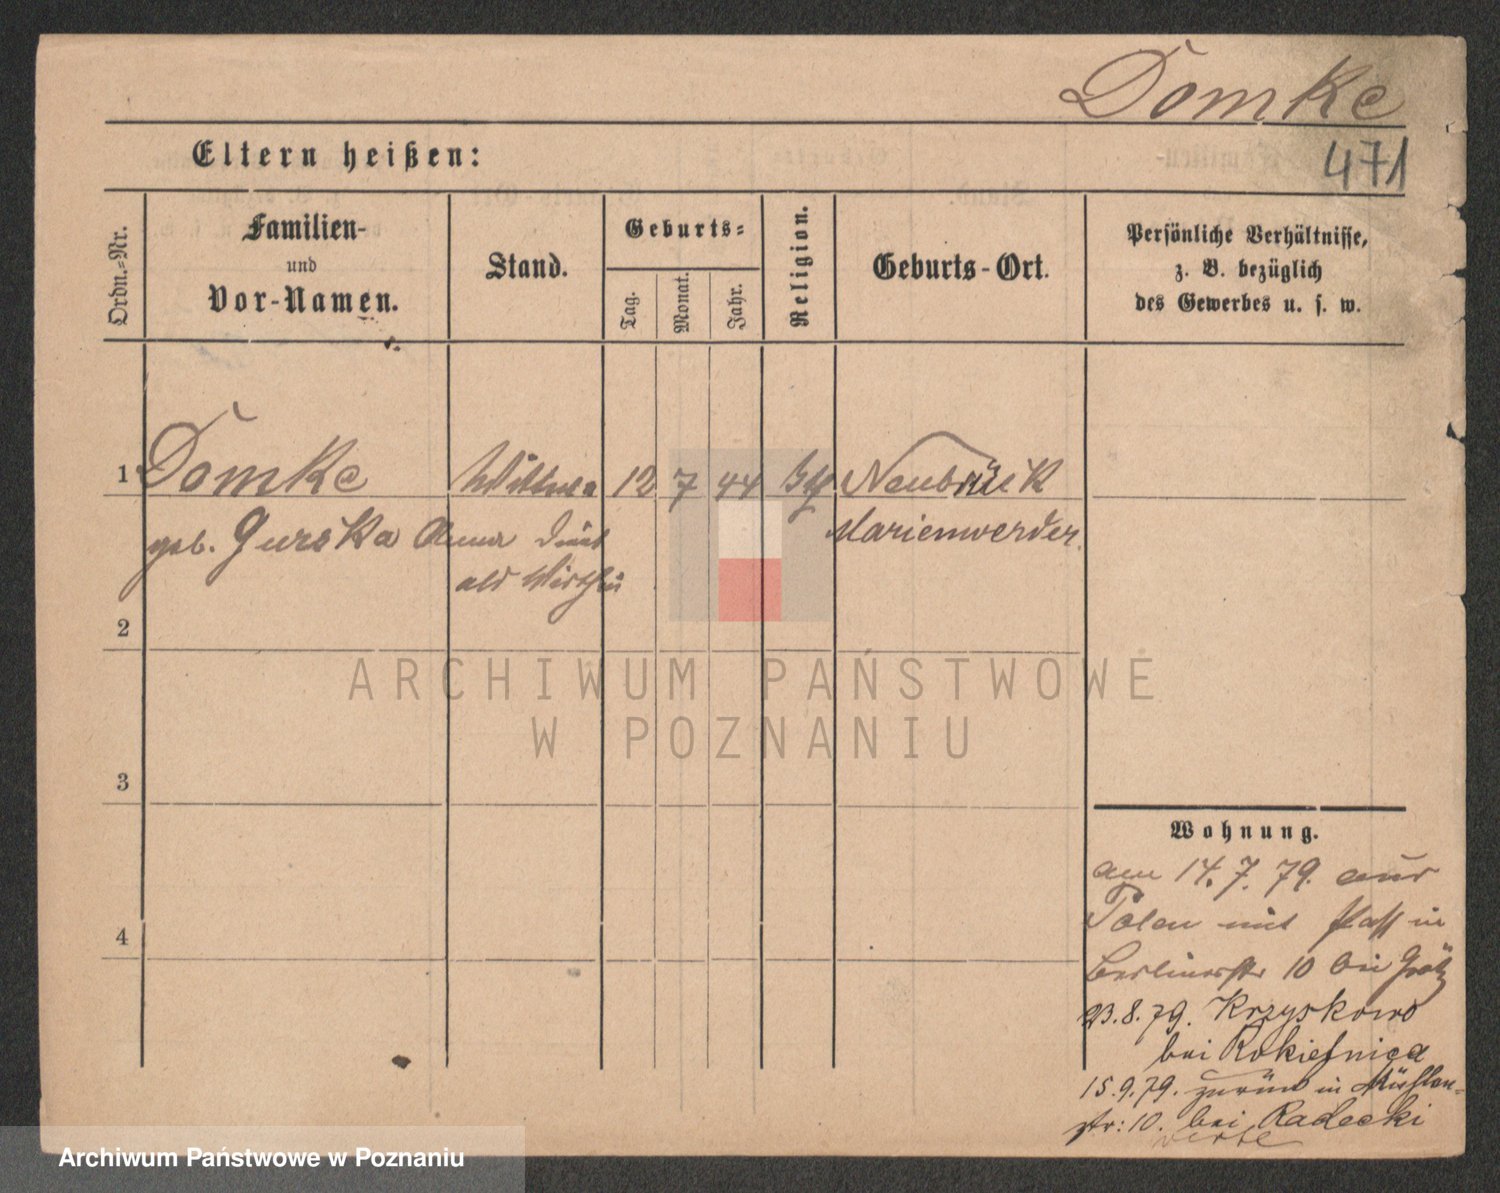 Domke
471
Eltern heißen:
Ordn.-Nr.
Familien-
und
Vor-Namen.
Stand.
Geburts-
Tag.
Monat.
Jahr.
Religion.
Geburts-Ort.
Persönliche Verhältnisse,
z. B. bezüglich
des Gewerbes u. s. w.
1 Domke Wittwe 12 7 44 Neubrück
geb. Gurska Anna dient Marienwerder.
als Wirthin
2
3
4
Wohnung.
am 14. 7. 79. aus
Polen mit Paß in
Berlinerstr 10 bei
23. 8. 79. Krzyskowo
bei Rokietnica
15. 9. 79. zurück in Mühlen-
str: 10. bei Radecki
verte
ARCHIWUM PAŃSTWOWE
W POZNANIU
Archiwum Państwowe w Poznaniu